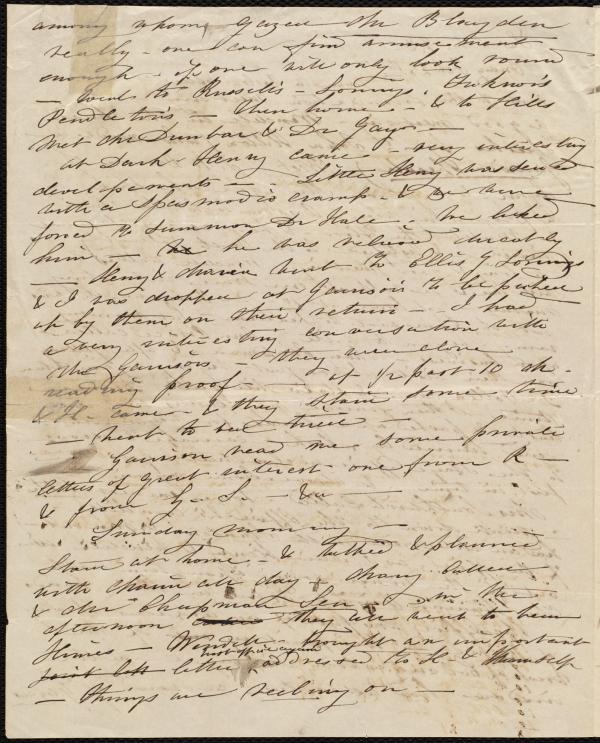 among whom, Gazed Mr Blayden
really - one can find amusement
enough - if one will only look round
- went to Russell's - Lorings,
Pendleton's - Then home - & to Hills
Met Mr Dunbar & Dr Gay -
at Dark - Henry came - very interesting
developements - - Little Henry was seized
with a spasmodic cramp - & we were
forced to summon Dr Hale. We liked
him - he was relieved directly
- Henry & Maria went to Ellis G Lorings
& I was dropped at Garrison's to be picked
up by them on their return - - I had
a very interesting conversation with
the Garrisons - they were alone
reading proof - - at 1/2 past 10 M.
& H - came - & they staid some time
- went to bed tired -
Garrison read me some private
letters of great interest one from R -
& from G. S. - &c -
Sunday morning -
Staid at home - & talked & planned
with Maria all day -
& Mr Chapman Sen. - In the
afternoon they all went to hear
Himes - Wendell brought an important
letter addressed to H - & himself
- things are reeling on -